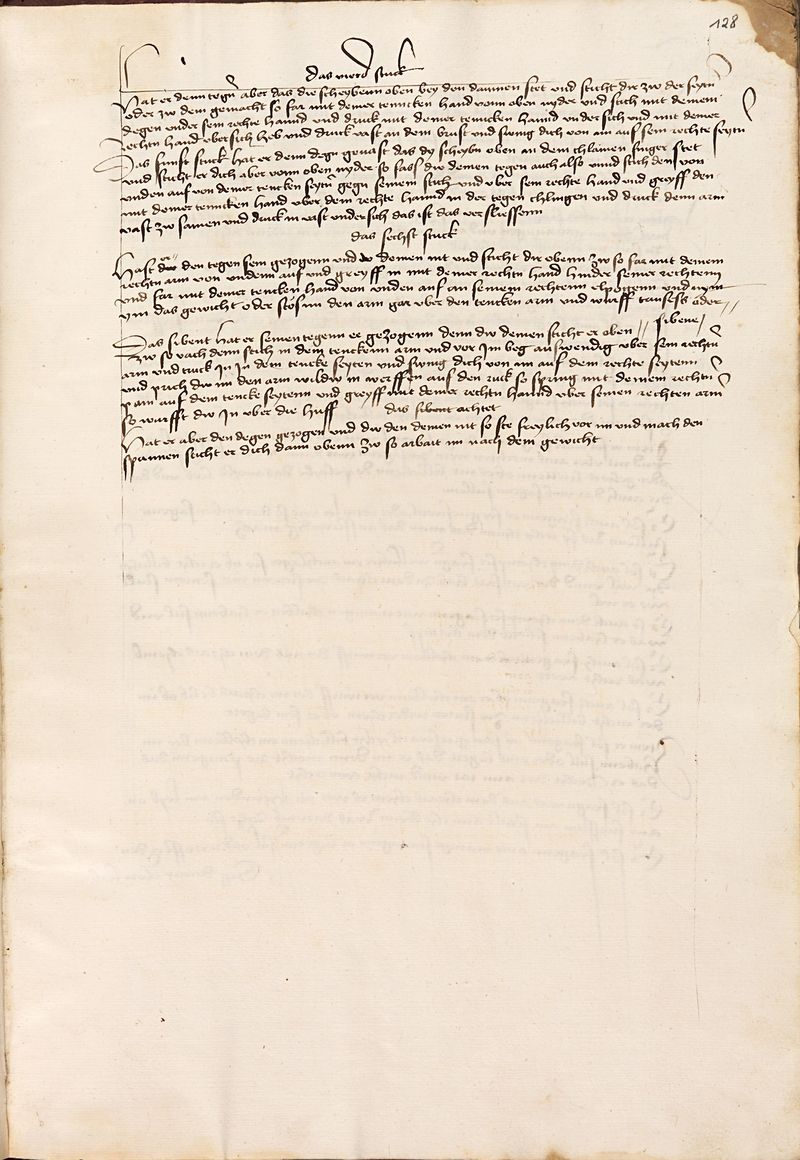 128
das vierd stuck
Hat er denn tegn aber das die scheybenn oben bey den daumen stet und sticht dir zw der seytn
oder zw dem gemacht so far mit deiner tencken hand vonn oben nyder und stich mit deinem
degen under sein rechte hannd und druck mit deiner tenncken hannd undersich und mit deiner
rechtn hand ubersich heb und druck vast an dein brust und swing dich von im auf sein rechte seytn
Das funft stuck hat er denn degn gevast das dy scheybn oben an dem chlainen finger stet
und sticht er dich aber vonn oben nyder so fass du deinen tegen auch also unnd stich den von
unden auf von deiner tencken seytn gegn seinem stich und uber sein rechte hand und greyff den
mit deiner tenncken hand uber dein rechte hannd in der tegen chlingen und druck denn arm
vast zw samen und druck in vast undersich das ist das versliessenn
das sechst stuck
Hast er den tegen sein gezogenn und dw deinen nit und sticht dir obenn zw so far mit deinem
rechtn arm von undenn auf und greyff in mit deiner rechtn hand hinder seiner rechtenn
und far mit deiner tencken hand von unden auf an seinem rechtenn elpogenn und nym
ym das gewicht oder stos im den arm gar uber den tencken arm und wurff oder
sibent
Das sibent hat er seinen tegenn er gezogenn denn dw deinen sticht er oben
zw so vach denn stich in dem tenckenn arm und var im beg auswendig uber sein rechtn
arm und truck in in dein tencke seyten und swing dich von im auf dein rechte seytenn
und prich dw im den arm wildw in werffen auf den ruck so spring mit deinem rechtn
pain auf dein tencke seytenn und greyff mit deiner rechtn hannd uber seinen rechten arm
so wurfft dw in uber die huff das sibent achtet
Hat er aber den degen gezogen und dw den deinen nit so ste freylich vor im und mach den
spannen sticht er dich dann obenn zw so arbait im nach dem gewicht